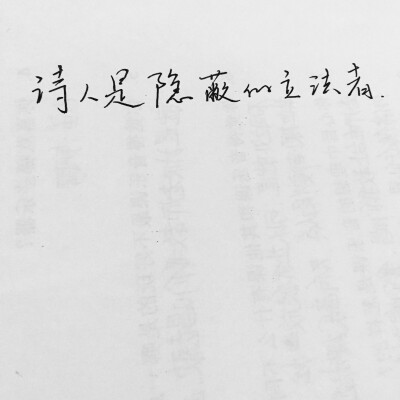 诗人是隐蔽的立法者.